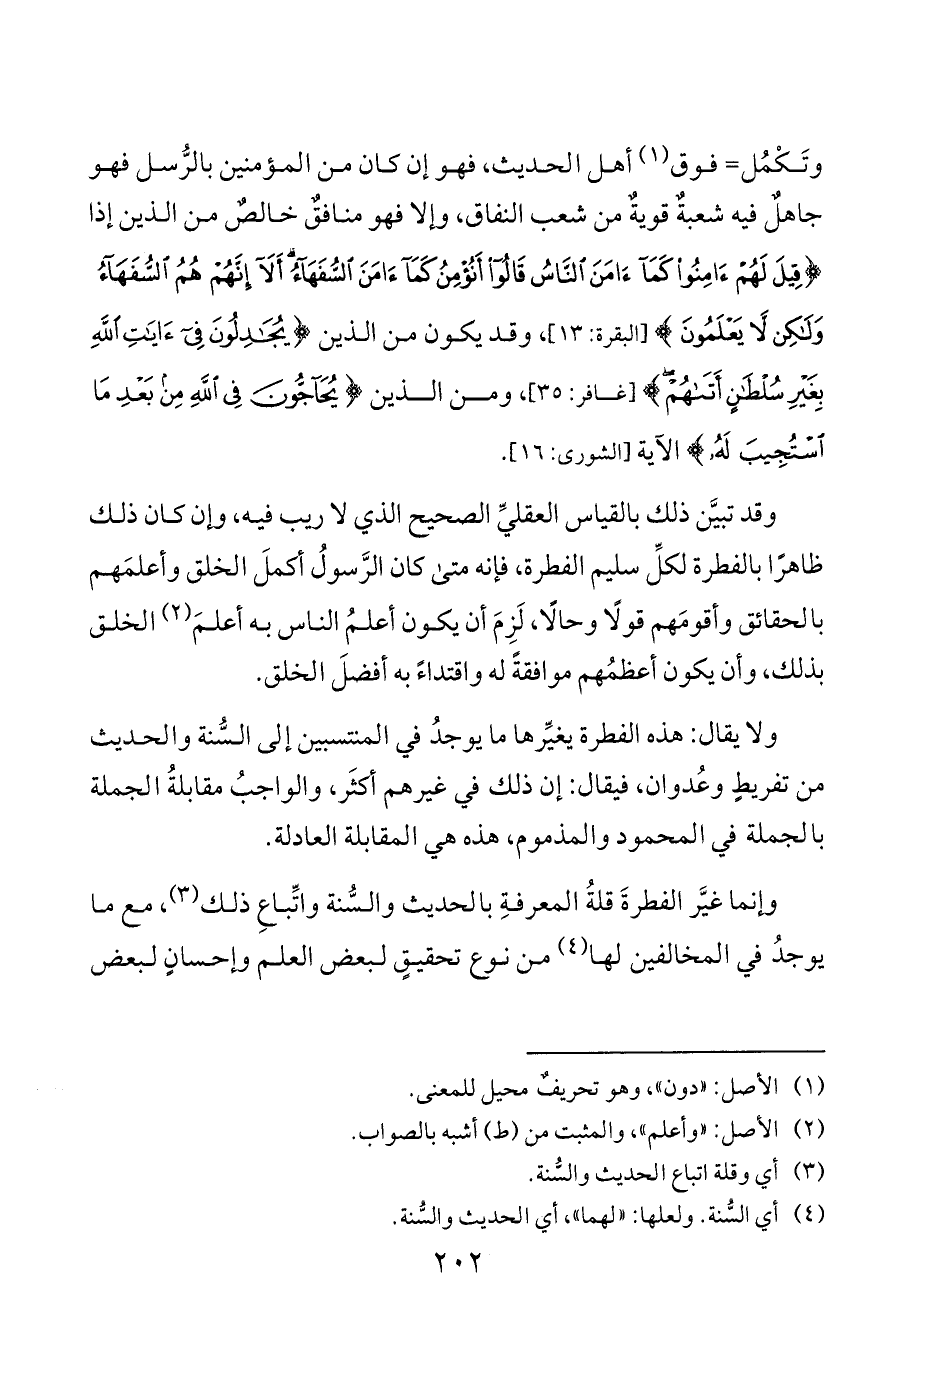 وتَكْمُل= فوق(١) أهل الحديث، فهو إن كان من المؤمنين بالرُّسل فهو
جاهلٌ فيه شعبةٌ قويةٌ من شعب النفاق، وإلا فهو منافقٌ خالصٌ من الذين إذا
﴿قِيلَ لَهُمْ ءَامِنُوا۟ كَمَآ ءَامَنَ ٱلنَّاسُ قَالُوٓا۟ أَنُؤْمِنُ كَمَآ ءَامَنَ ٱلسُّفَهَآءُ ۗ أَلَآ إِنَّهُمْ هُمُ ٱلسُّفَهَآءُ
وَلَـٰكِن لَّا يَعْلَمُونَ﴾ [البقرة: ١٣]، وقد يكون من الذين ﴿يُجَـٰدِلُونَ فِىٓ ءَايَـٰتِ ٱللَّهِ
بِغَيْرِ سُلْطَـٰنٍ أَتَىٰهُمْ ۖ﴾ [غافر: ٣٥]، ومن الذين ﴿يُحَآجُّونَ فِى ٱللَّهِ مِنۢ بَعْدِ مَا
ٱسْتُجِيبَ لَهُۥ﴾ الآية [الشورى: ١٦].
وقد تبيَّن ذلك بالقياس العقليِّ الصحيح الذي لا ريب فيه، وإن كان ذلك
ظاهرًا بالفطرة لكلِّ سليم الفطرة، فإنه متىٰ كان الرَّسولُ أكملَ الخلق وأعلمَهم
بالحقائق وأقومَهم قولًا وحالًا، لَزِمَ أن يكون أعلمُ الناس به أعلمَ(٢) الخلق
بذلك، وأن يكون أعظمُهم موافقةً له واقتداءً به أفضلَ الخلق.
ولا يقال: هذه الفطرة يغيِّرها ما يوجدُ في المنتسبين إلى السُّنة والحديث
من تفريطٍ وعُدوان، فيقال: إن ذلك في غيرهم أكثَر، والواجبُ مقابلةُ الجملة
بالجملة في المحمود والمذموم، هذه هي المقابلة العادلة.
وإنما غيَّر الفطرةَ قلةُ المعرفةِ بالحديث والسُّنة واتِّباعِ ذلك(٣)، مع ما
يوجدُ في المخالفين لها(٤) من نوع تحقيقٍ لبعض العلم وإحسانٍ لبعض
(١) الأصل: «دون»، وهو تحريفٌ محيل للمعنى.
(٢) الأصل: «وأعلم»، والمثبت من (ط) أشبه بالصواب.
(٣) أي وقلة اتباع الحديث والسُّنة.
(٤) أي السُّنة. ولعلها: «لهما»، أي الحديث والسُّنة.
٢٠٢